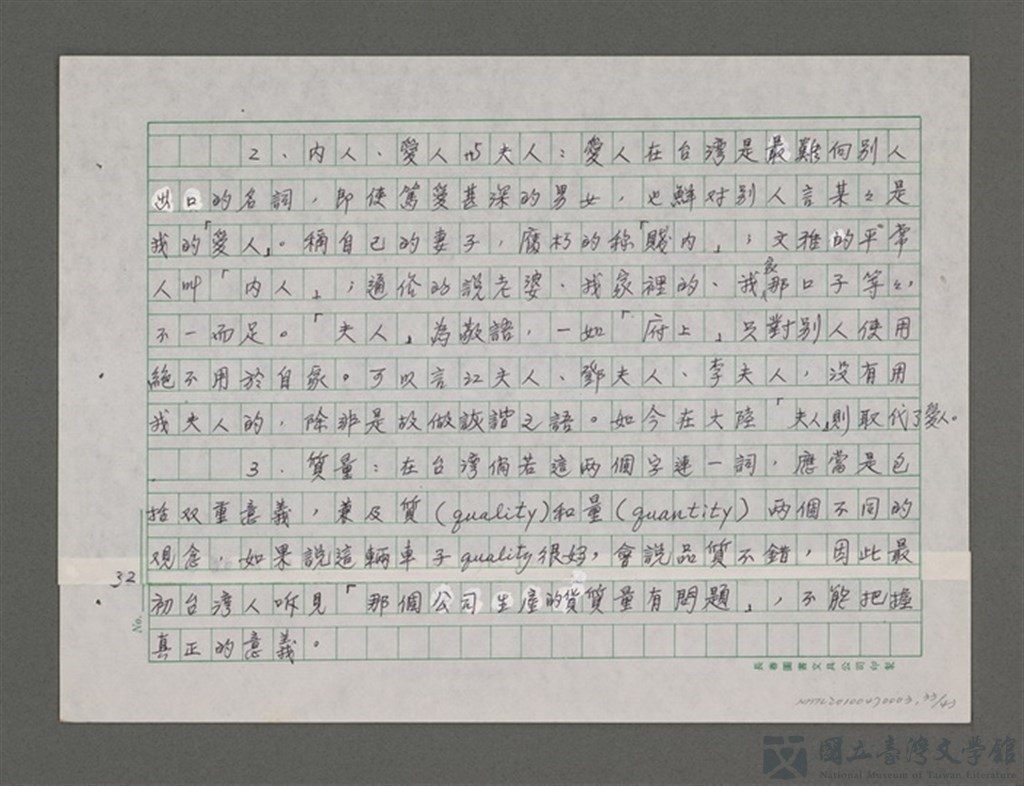 2、内人、愛人与夫人：愛人在台湾是最難向別人
出口的名詞，即使篤愛甚深的男女，也鮮对別人言某々是
我的「愛人」。稱自己的妻子，腐朽的称「賤内」；文雅的平常
人叫「内人」；通俗的說老婆、我家裡的、我家那口子等々，
不一而足。「夫人」為敬語，一如「府上」只對別人使用
絕不用於自家。可以言江夫人、鄧夫人、李夫人，没有用
我夫人的，除非是故做詼諧之語。如今在大陸「夫人」則取代了愛人。
3．質量：在台湾倘若這両個字連一詞，應當是包
括双重意義，兼及質（quality）和量（quantity）両個不同的
观念，如果説這輛車子quality很好，會説品質不錯，因此最
初台湾人听見「那個公司生產的貨質量有問題」，不能把握
真正的意義。
32
No.
長春圖書文具公司印製
NMTL20100470003. 33/45
國立臺灣文學館
National Museum of Taiwan Literature